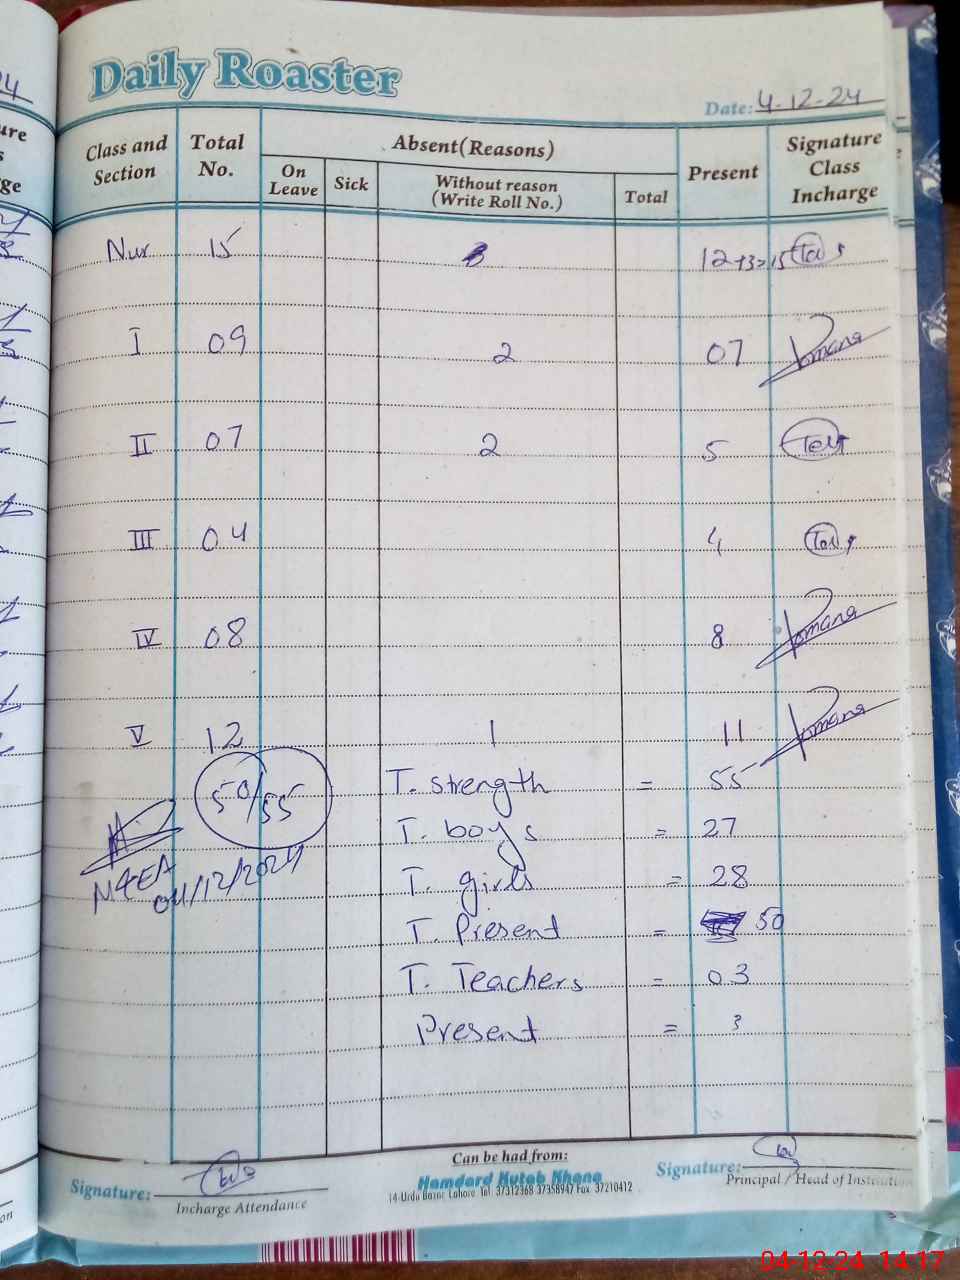 Daily Roaster
Date: 4-12-24
Class and Section Total No. Absent(Reasons) Present Signature Class Incharge
On Leave Sick Without reason (Write Roll No.) Total
Nur 15 3 12+3=15
I 09 2 07 Romana
II 07 2 5
III 04 4
IV 08 8 Romana
V 12 1 11 Romana
50/55
T. strength = 55
T. boys = 27
T. girls = 28
T. Present = 50
T. Teachers = 03
Present = 3
04/12/2024
Signature:
Incharge Attendance
Can be had from:
Hamdard Kutab Khana
14-Urdu Bazar Lahore Tel: 37312368 37358947 Fax: 37210412
Signature:
Principal / Head of Institution
04-12-24 14:17